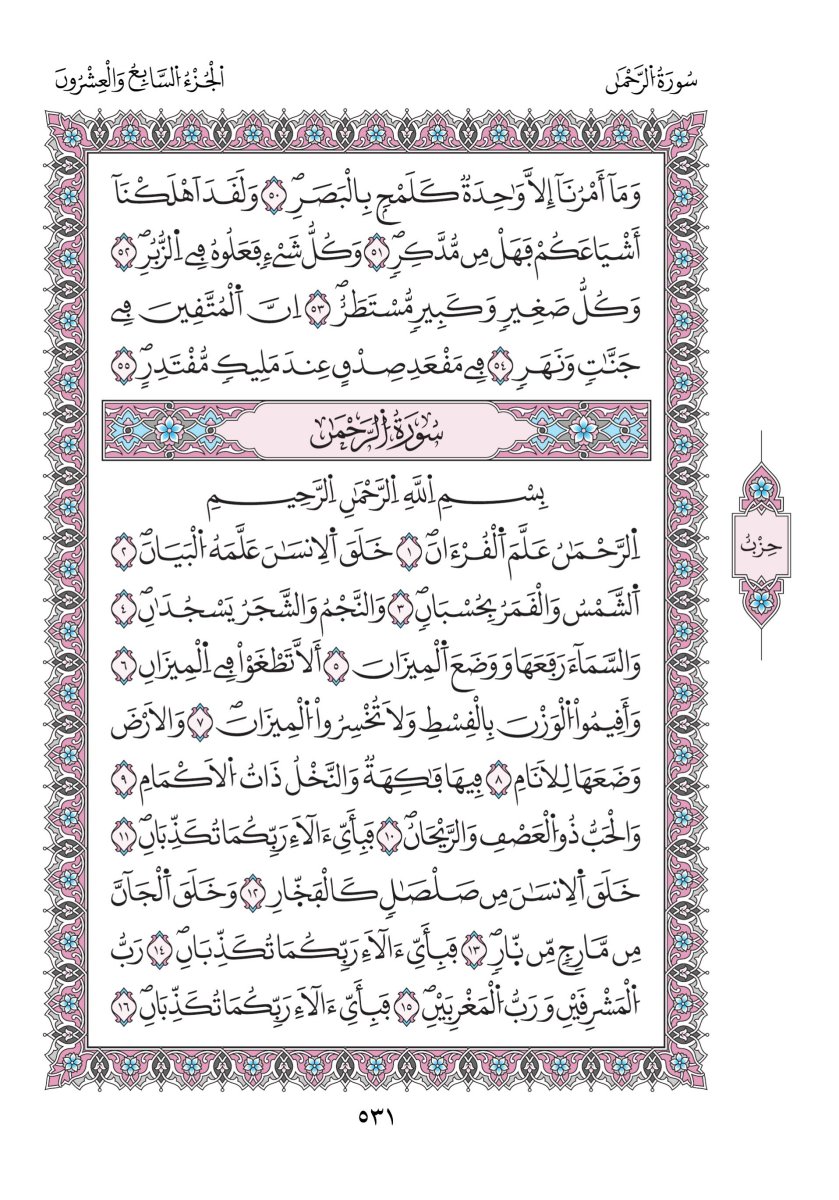 سُورَةُ الرَّحْمَٰن
الْجُزْءُ السَّابِعُ وَالْعِشْرُونَ
وَمَآ أَمْرُنَآ إِلَّا وَٰحِدَةٌ كَلَمْحٍۭ بِالْبَصَرِۖ ٥٠ وَلَقَدَ اَهْلَكْنَآ
أَشْيَاعَكُمْ فَهَلْ مِن مُّدَّكِرٍۖ ٥١ وَكُلُّ شَےْءٍ فَعَلُوهُ فِے اِ۬لزُّبُرِۖ ٥٢
وَكُلُّ صَغِيرٍ وَكَبِيرٍ مُّسْتَطَرٌۖ ٥٣ اِنَّ اَ۬لْمُتَّقِينَ فِے
جَنَّٰتٍ وَنَهَرٍ ٥٤ فِے مَقْعَدِ صِدْقٍ عِندَ مَلِيكٍ مُّقْتَدِرٍۖ ٥٥
سُورَةُ اُ۬لرَّحْمَٰن
بِسْمِ اِ۬للَّهِ اِ۬لرَّحْمَٰنِ اِ۬لرَّحِيمِ
اِ۬لرَّحْمَٰنُ عَلَّمَ اَ۬لْقُرْءَانَۖ ١ خَلَقَ اَ۬لِانسَٰنَ عَلَّمَهُ اُ۬لْبَيَانَۖ ٢
اَ۬لشَّمْسُ وَالْقَمَرُ بِحُسْبَانٍۖ ٣ وَالنَّجْمُ وَالشَّجَرُ يَسْجُدَٰنِۖ ٤
وَالسَّمَآءَ رَفَعَهَا وَوَضَعَ اَ۬لْمِيزَانَ ٥ أَلَّا تَطْغَوْاْ فِے اِ۬لْمِيزَانِ ٦
وَأَقِيمُواْ اُ۬لْوَزْنَ بِالْقِسْطِ وَلَا تُخْسِرُواْ اُ۬لْمِيزَانَۖ ٧ وَالَارْضَ
وَضَعَهَا لِلَانَامِ ٨ فِيهَا فَٰكِهَةٌ وَالنَّخْلُ ذَاتُ اُ۬لَاكْمَامِ ٩
وَالْحَبُّ ذُو اُ۬لْعَصْفِ وَالرَّيْحَانُۖ ١٠ فَبِأَيِّ ءَالَآءِ رَبِّكُمَا تُكَذِّبَانِۖ ١١
خَلَقَ اَ۬لِانسَٰنَ مِن صَلْصَٰلٍ كَالْفَخّ۪ارِ ١٢ وَخَلَقَ اَ۬لْجَآنَّ
مِن مَّارِجٍ مِّن نّ۪ارٍۖ ١٣ فَبِأَيِّ ءَالَآءِ رَبِّكُمَا تُكَذِّبَانِۖ ١٤ رَبُّ
اُ۬لْمَشْرِقَيْنِ وَرَبُّ اُ۬لْمَغْرِبَيْنِۖ ١٥ فَبِأَيِّ ءَالَآءِ رَبِّكُمَا تُكَذِّبَانِۖ ١٦
حِزْبٌ
٥٣١